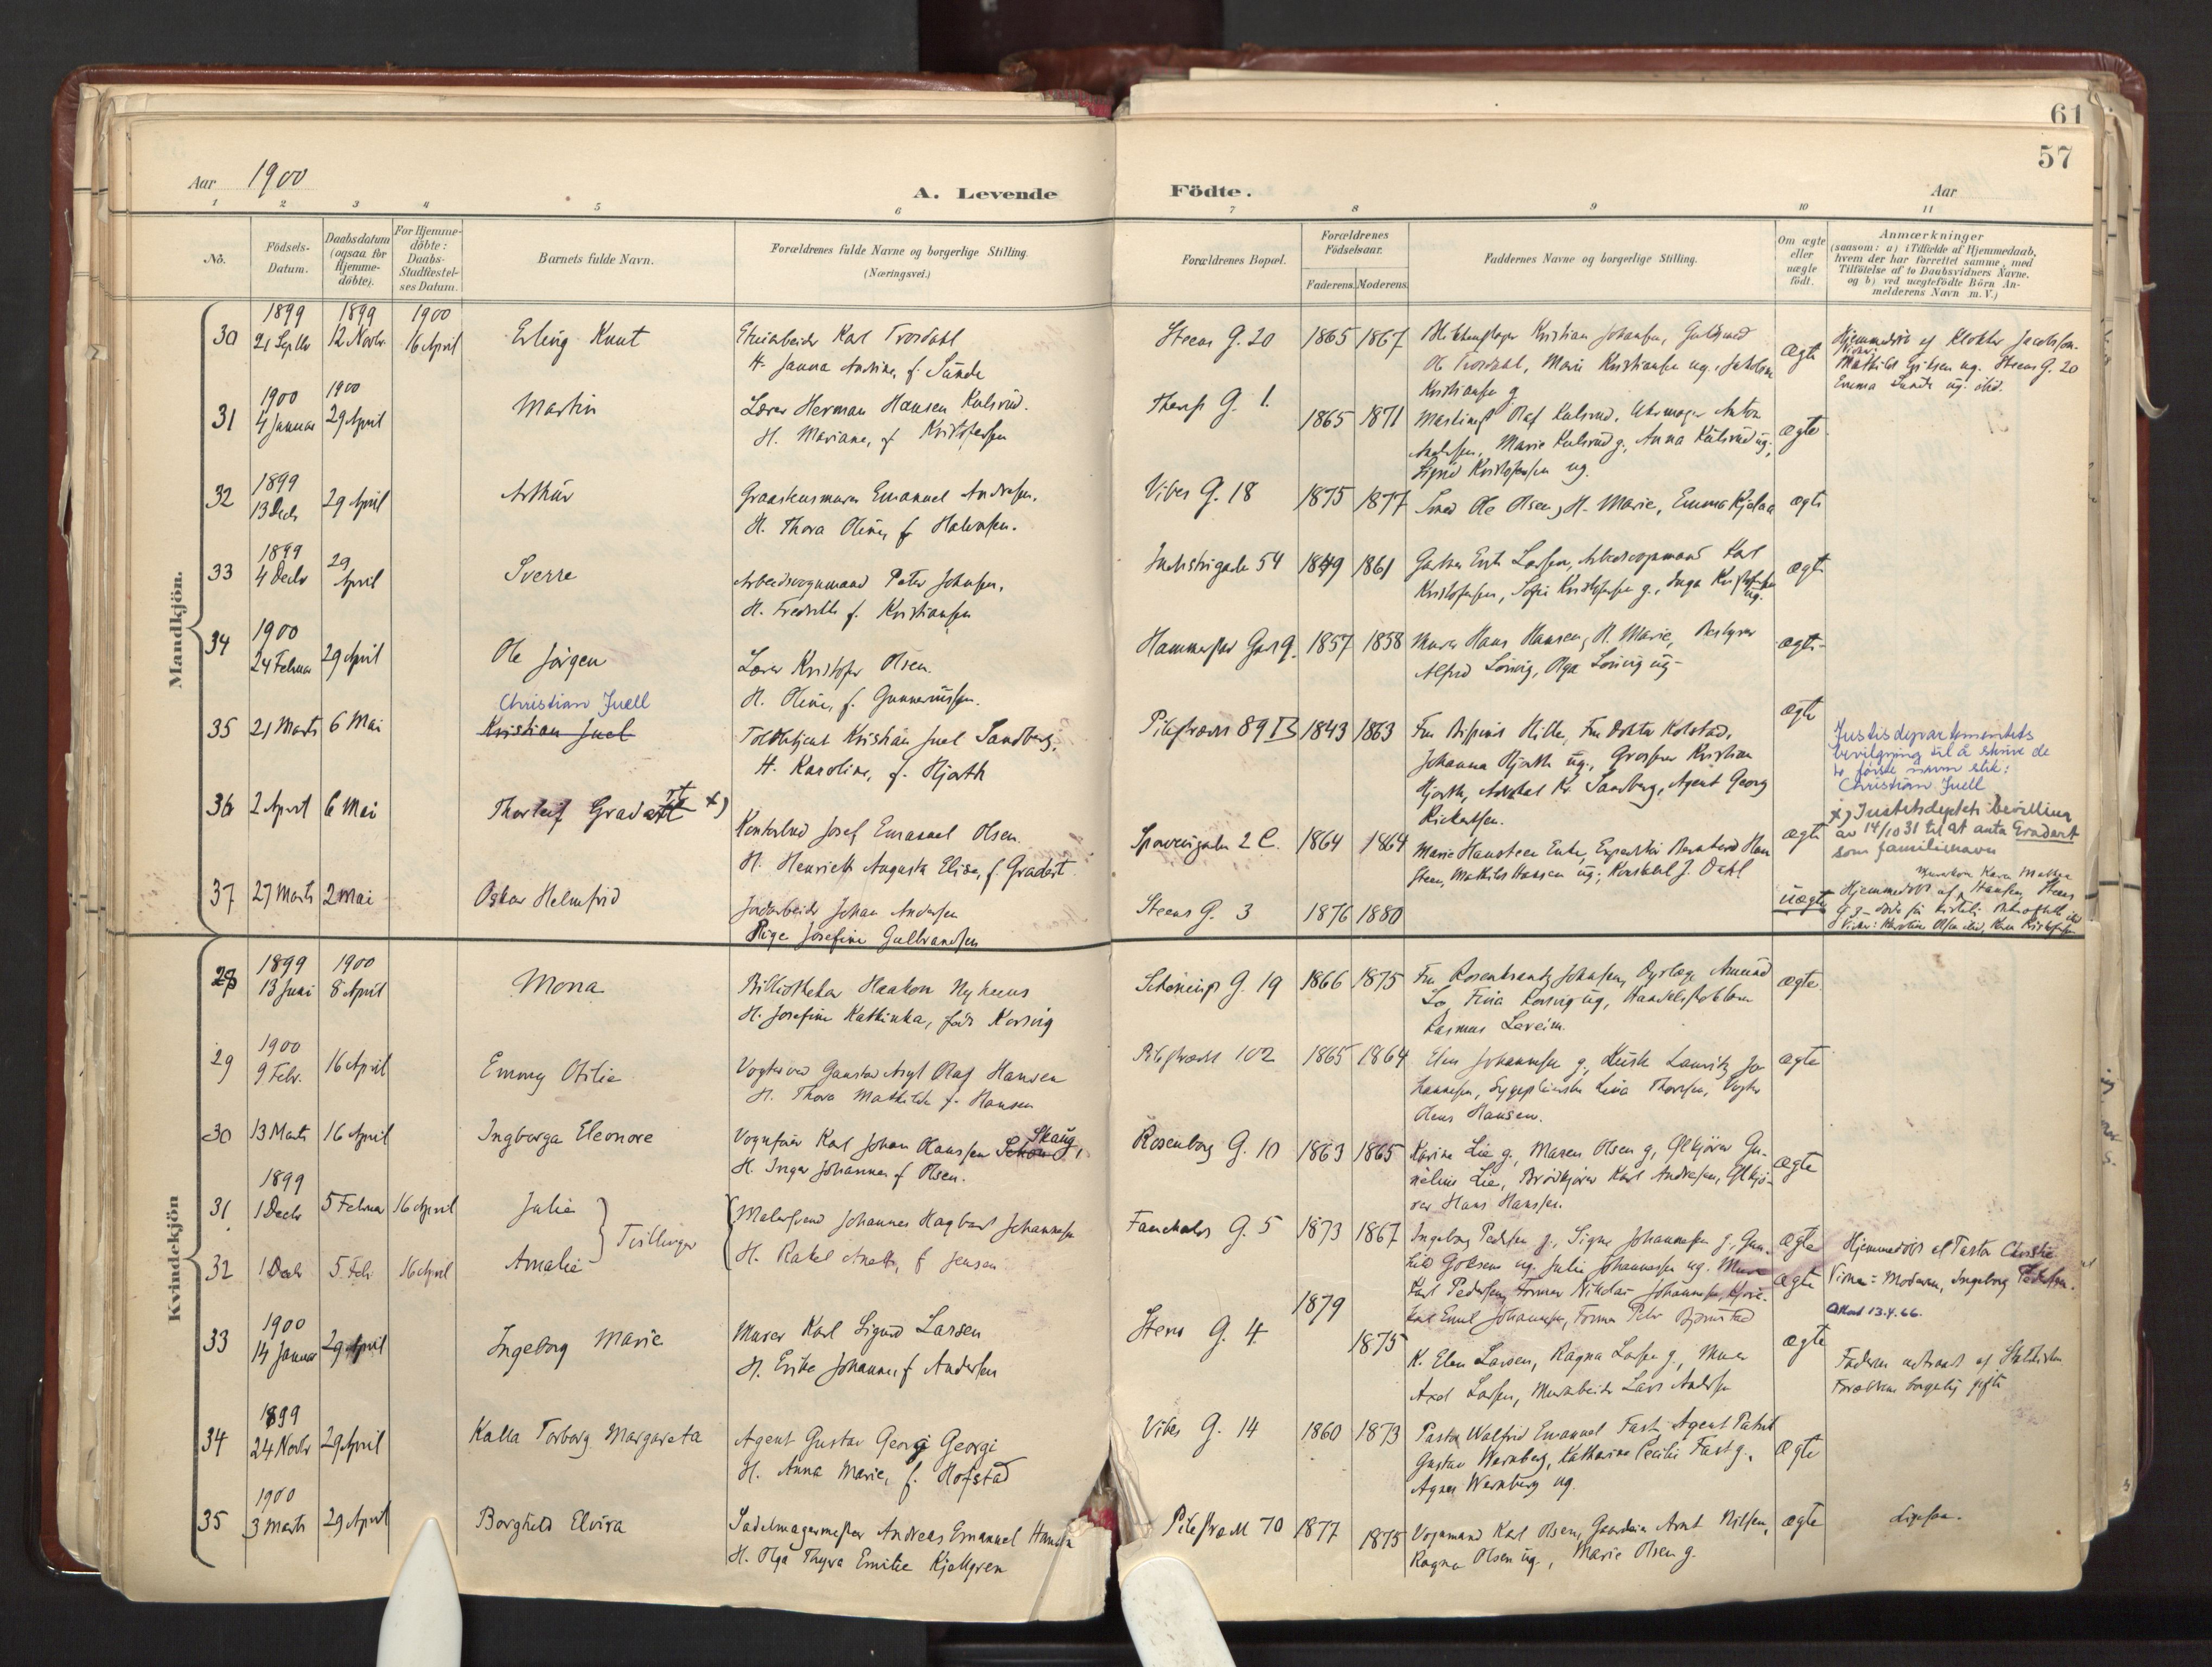 61
57
Aar 1900
A. Levende
Födte.
Aar
1 2 3 4 5 6 7 8 9 10 11
No.
Födsels-
Datum.
Daabsdatum
(ogsaa for
Hjemme-
döbte).
For Hjemme-
döbte:
Daabs-
Stadfæstel-
ses Datum.
Barnets fulde Navn.
Forældrenes fulde Navne og borgerlige Stilling
(Næringsvei.)
Forældrenes Bopæl.
Forældrenes
Födselsaar.
Faderens. Moderens.
Faddernes Navne og borgerlige Stilling.
Om ægte
eller
uægte
födt.
Anmærkninger
(saasom: a) i Tilfælde af Hjemmedaab,
hvem der har forrettet samme, med
Tilföielse af to Daabsvidners Navne,
og b) ved uægtefödte Börn An-
melderens Navn m. V.)
Mandkjön.
30
1899
21 Septbr
1899
12 Novbr.
1900
16 April
Erling Knut
Karl Trosdahl
H. Janna Andrine, f. Sande
Steens G. 20
1865 1867
Kristian Johansen, Guldsmed
Ole Trosdahl, Marie Kristiansen ug.
Kristiansen g.
ægte
Hjemmedöbt af Klokker Jacobsen.
Steens G. 20
Emma Sande ug. ibid.
31
1900
4 Januar
1900
29 April
Martin
Lærer Herman Hansen Kulsrud.
H. Mariane, f. Kristofersen
G. 1.
1865 1871
Olaf Kulsrud, Uhrmager Anton
Andersen, Marie Kulsrud g., Anna Kulsrud ug.,
Signe Kristofersen ug.
ægte
32
1899
13 Decb
29 April
Arthur
Emanuel Andresen.
H. Thora Oline, f. Halvorsen.
Vibes G. 18
1875 1877
Smed Ole Olsen, H. Marie, Emma
ægte
33
1899
4 Decbr
29
April
Sverre
Arbeidsvognmand Peter Johnsen,
H. Fredrikke f. Kristiansen
Industrigade 54
1849 1861
Larsen, Arbeidsvognmand Karl
Kristofersen, Sofie Kristofersen g., Inga Kristofersen
ug.
ægte
34
1900
24 Februar
29 April
Ole Jörgen
Lærer Kristofer Olsen.
H. Oline, f. Gunneriussen.
1857 1858
Murer Hans Hansen, H. Marie, Bestyrer
Alfred Lövig, Olga Lövig ug.
ægte
35
21 Marts
6 Mai
Christian Juell
Kristian Juel
Toldbetjent Kristian Juel Sandberg,
H. Karoline, f. Hjorth
Pilestrædet 89 B
1843 1863
Fru Hille, Fru Doktor Kolstad,
Johanna Hjorth ug., Grosserer Kristian
Hjorth, Advokat Kr. Sandberg, Agent Georg
Rickertsen.
ægte
Justisdepartementets
bevilgning til å skrive de
to første navn slik:
Christian Juell
36
2 April
6 Mai
Thorleif Gradert x)
Kontorbud Josef Emanuel Olsen.
H. Henriette Augusta Elise, f. Gradert
Sporveisgaden 2 C.
1864 1864
Marie Hansteen Enke, Expeditör Bernhard Han
steen, Mathilde Hansen ug., Konstabel J. Dahl
ægte
x) Justitsdeptets bevilling
av 14/10 31 til at anta Gradert
som familienavn
37
27 Marts
2 Mai
Oskar Helmfrid
Jordarbeider Johan Andersen
Pige Josefine Gulbrandsen
Steens G. 3
1876 1880
uægte
Hjemmedöbt af
Kvindekjön
28
1899
13 Juni
1900
8 April
Mona
Bibliothekar Haakon Nyhuus
H. Josefine Kathinka, föds Korsvig
Schönings G. 19
1866 1875
Fru Rosenkrantz Johnsen, Dyrlæge Amund
Lo, Fina Korsvig ug,
Rasmus Løveim.
ægte
29
1900
9 Febr.
16 April
Emmy Otilie
Vogter ved Gaustad Asyl Olaf Hansen
H. Thora Mathilde f. Hansen
Pilestrædet 102
1865 1864
Elen Johannesen g., Kusk Lauritz Jo
hannesen, Lina Thoresen, Vogter
Hansen.
ægte
30
13 Marts
16 April
Ingborga Eleonore
Skaug,
Vognfører Karl Johan Claussen
H. Inger Johanne f. Olsen.
Rosenborg G. 10
1863 1865
Karine Lie g., Maren Olsen g, Ölkjörer Gu-
nelius Lie, Brödkjörer Karl Andresen, Ölkjö-
rer Hans Hanssen.
ægte
31
1899
1 Decbr
5 Februar
16 April
Julie
Tvillinger
Malersvend Johannes Hagbart Johannesen
H. Rakel Anette, f. Jensen
Fauchalds G. 5
1873 1867
Ingeborg Pedersen g., Signe Johannesen g., Gun-
hild ug. Julie Johannessen ug. Murer
Karl Pedersen, Former Nikolai Johannesen,
Karl Emil Johannesen, Former Peter Björnstad
ægte
Hjemmedöbt af Pastor Christie
Vidner: Moderen, Ingeborg Pedersen.
32
1 Decbr
5 Feb.
16 April
Amalie
ægte
13.4.66.
33
1900
14 Januar
29 April
Ingeborg Marie
Murer Karl Sigurd Larsen
H. Erike Johanne f. Andersen
Stens G. 4
1879
1875
K. Elen Larsen, Ragna Larsen g., Murer
Axel Larsen, Murarbeider Lars Andersen
ægte
Faderen udtraadt af Statskirken
Forældrene borgerlig gifte
34
1899
24 Novbr
29 April
Kalla Torborg Margareta
Agent Gustav Georg Georgi
H. Anna Marie, f. Hofstad
Vibes G. 14
1860 1873
Pastor Walfrid Emanuel Fast, Agent Patrik
Gustav Wernberg, Katharina Cecilie Fast g.,
Agnes Wernberg ug.
ægte
35
1900
3 Marts
29 April
Borghild Elvira
Sadelmagermester Andreas Emanuel Hansen
H. Olga Thyra Emilie Kjellgren
Pilestrædet 70
1877
1875
Vognmand Karl Olsen, Arnt Nilsen,
Ragna Olsen ug., Marie Olsen g.
ægte